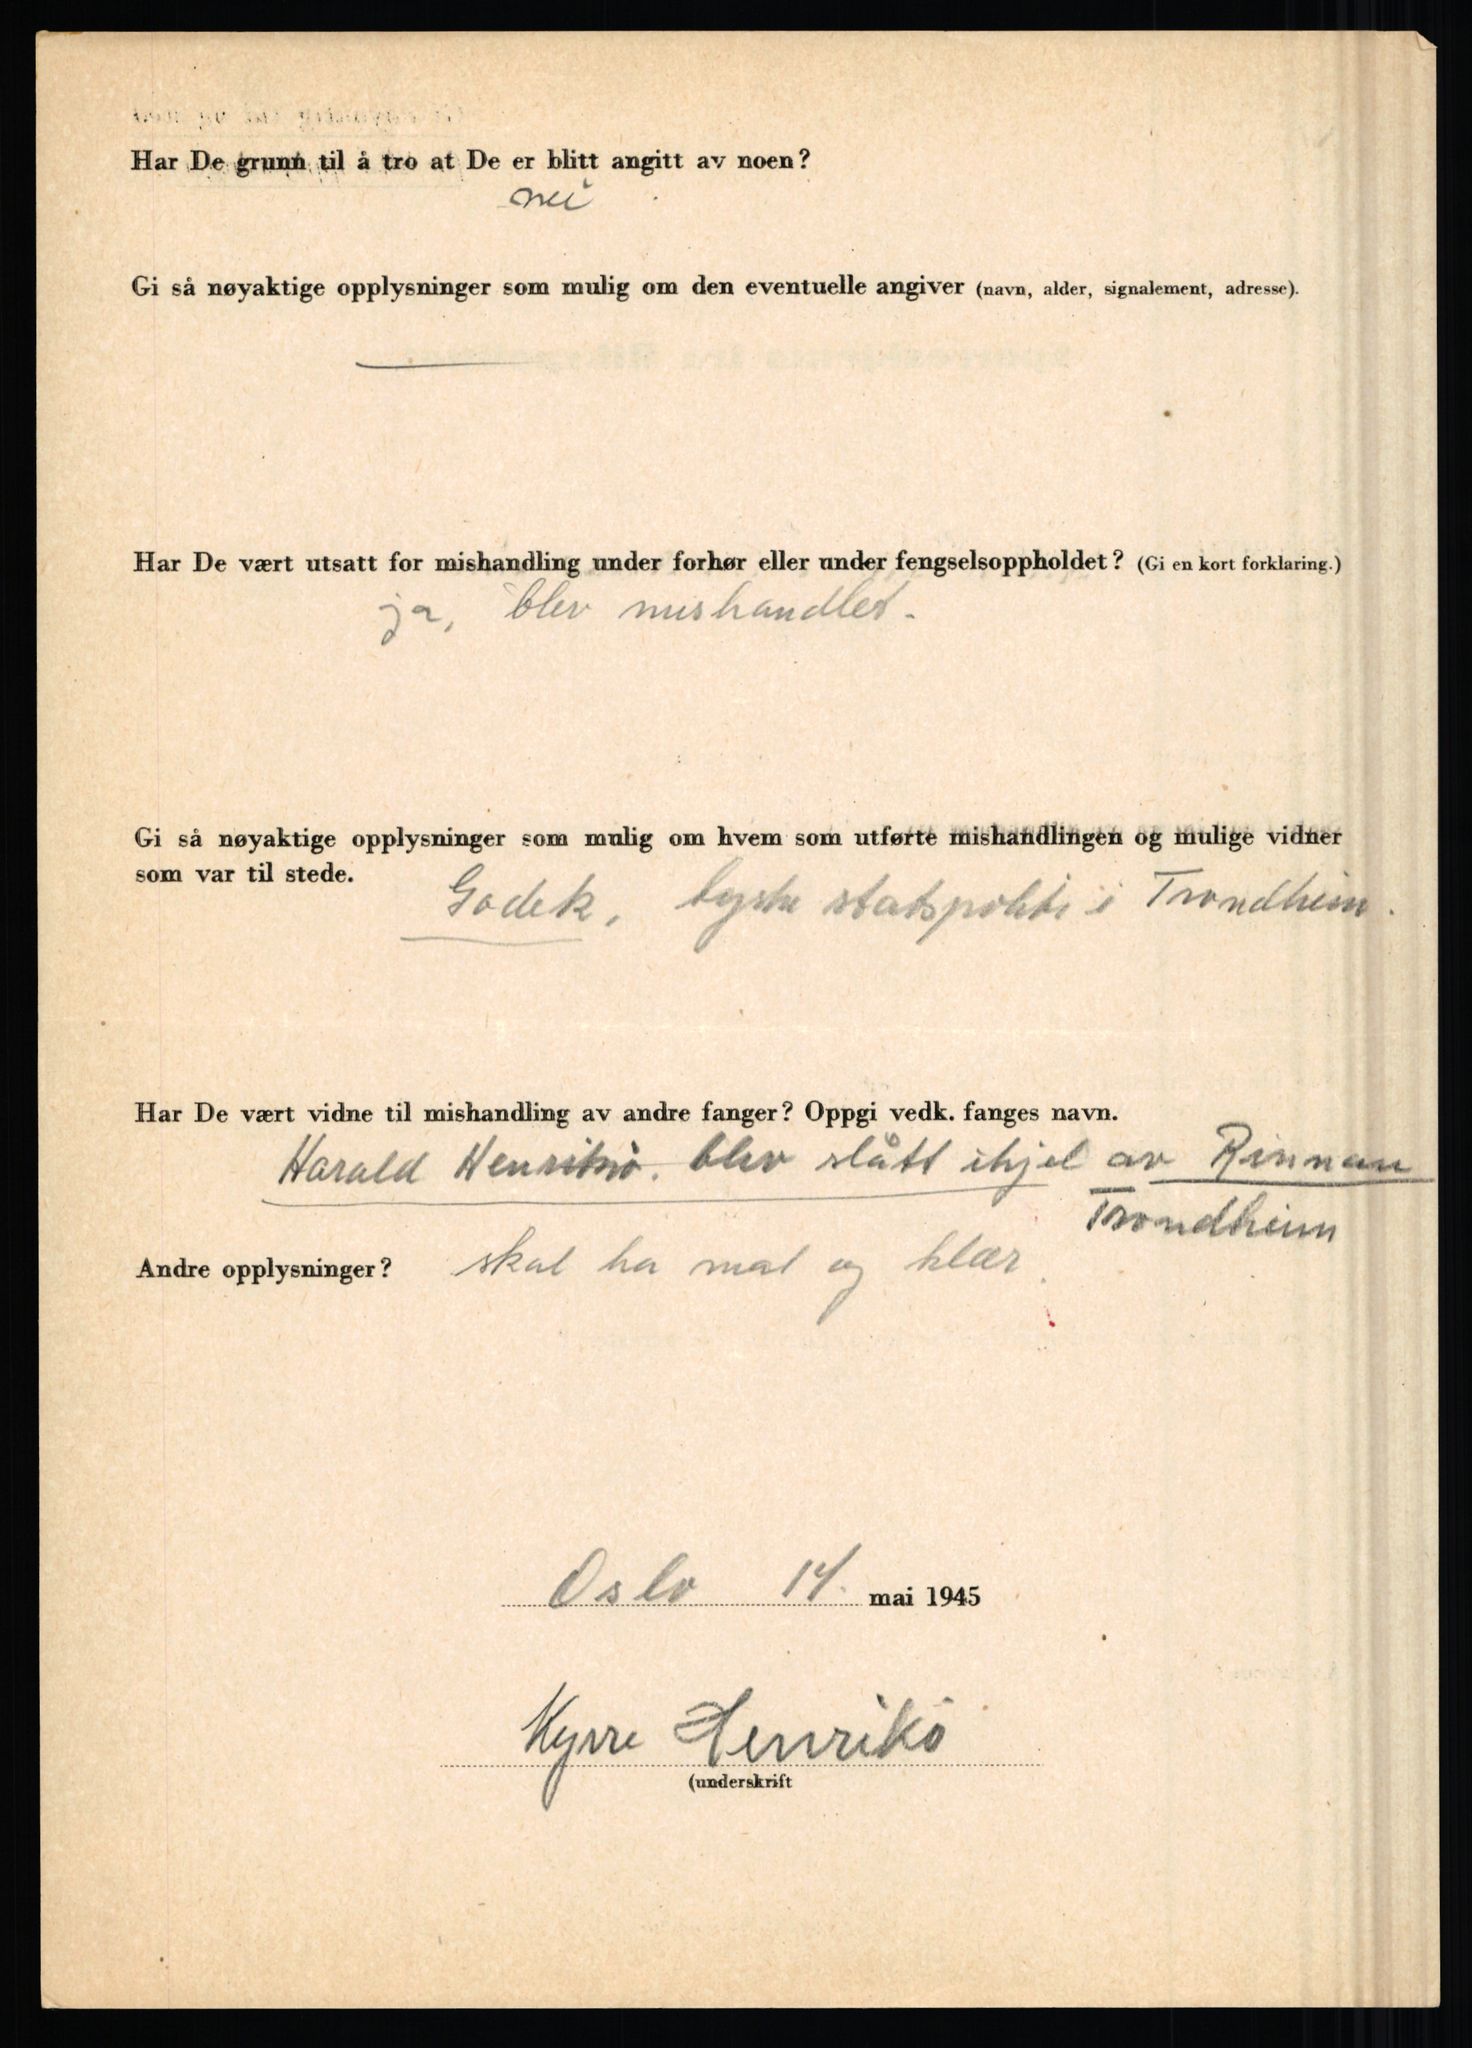 Har De grunn til å tro at De er blitt angitt av noen?
nei
Gi så nøyaktige opplysninger som mulig om den eventuelle angiver (navn, alder, signalement, adresse).
Har De vært utsatt for mishandling under forhør eller under fengselsoppholdet? (Gi en kort forklaring.)
ja, blev mishandlet.
Gi så nøyaktige opplysninger som mulig om hvem som utførte mishandlingen og mulige vidner
som var til stede.
Godek, tyske statspoliti i Trondheim.
Har De vært vidne til mishandling av andre fanger? Oppgi vedk. fanges navn.
Harald Henrikö. blev slått ihjel av Rinnan
Trondheim
Andre opplysninger? skal ha mat og klær.
Oslo 14. mai 1945
Kyrre Henrikö
(underskrift